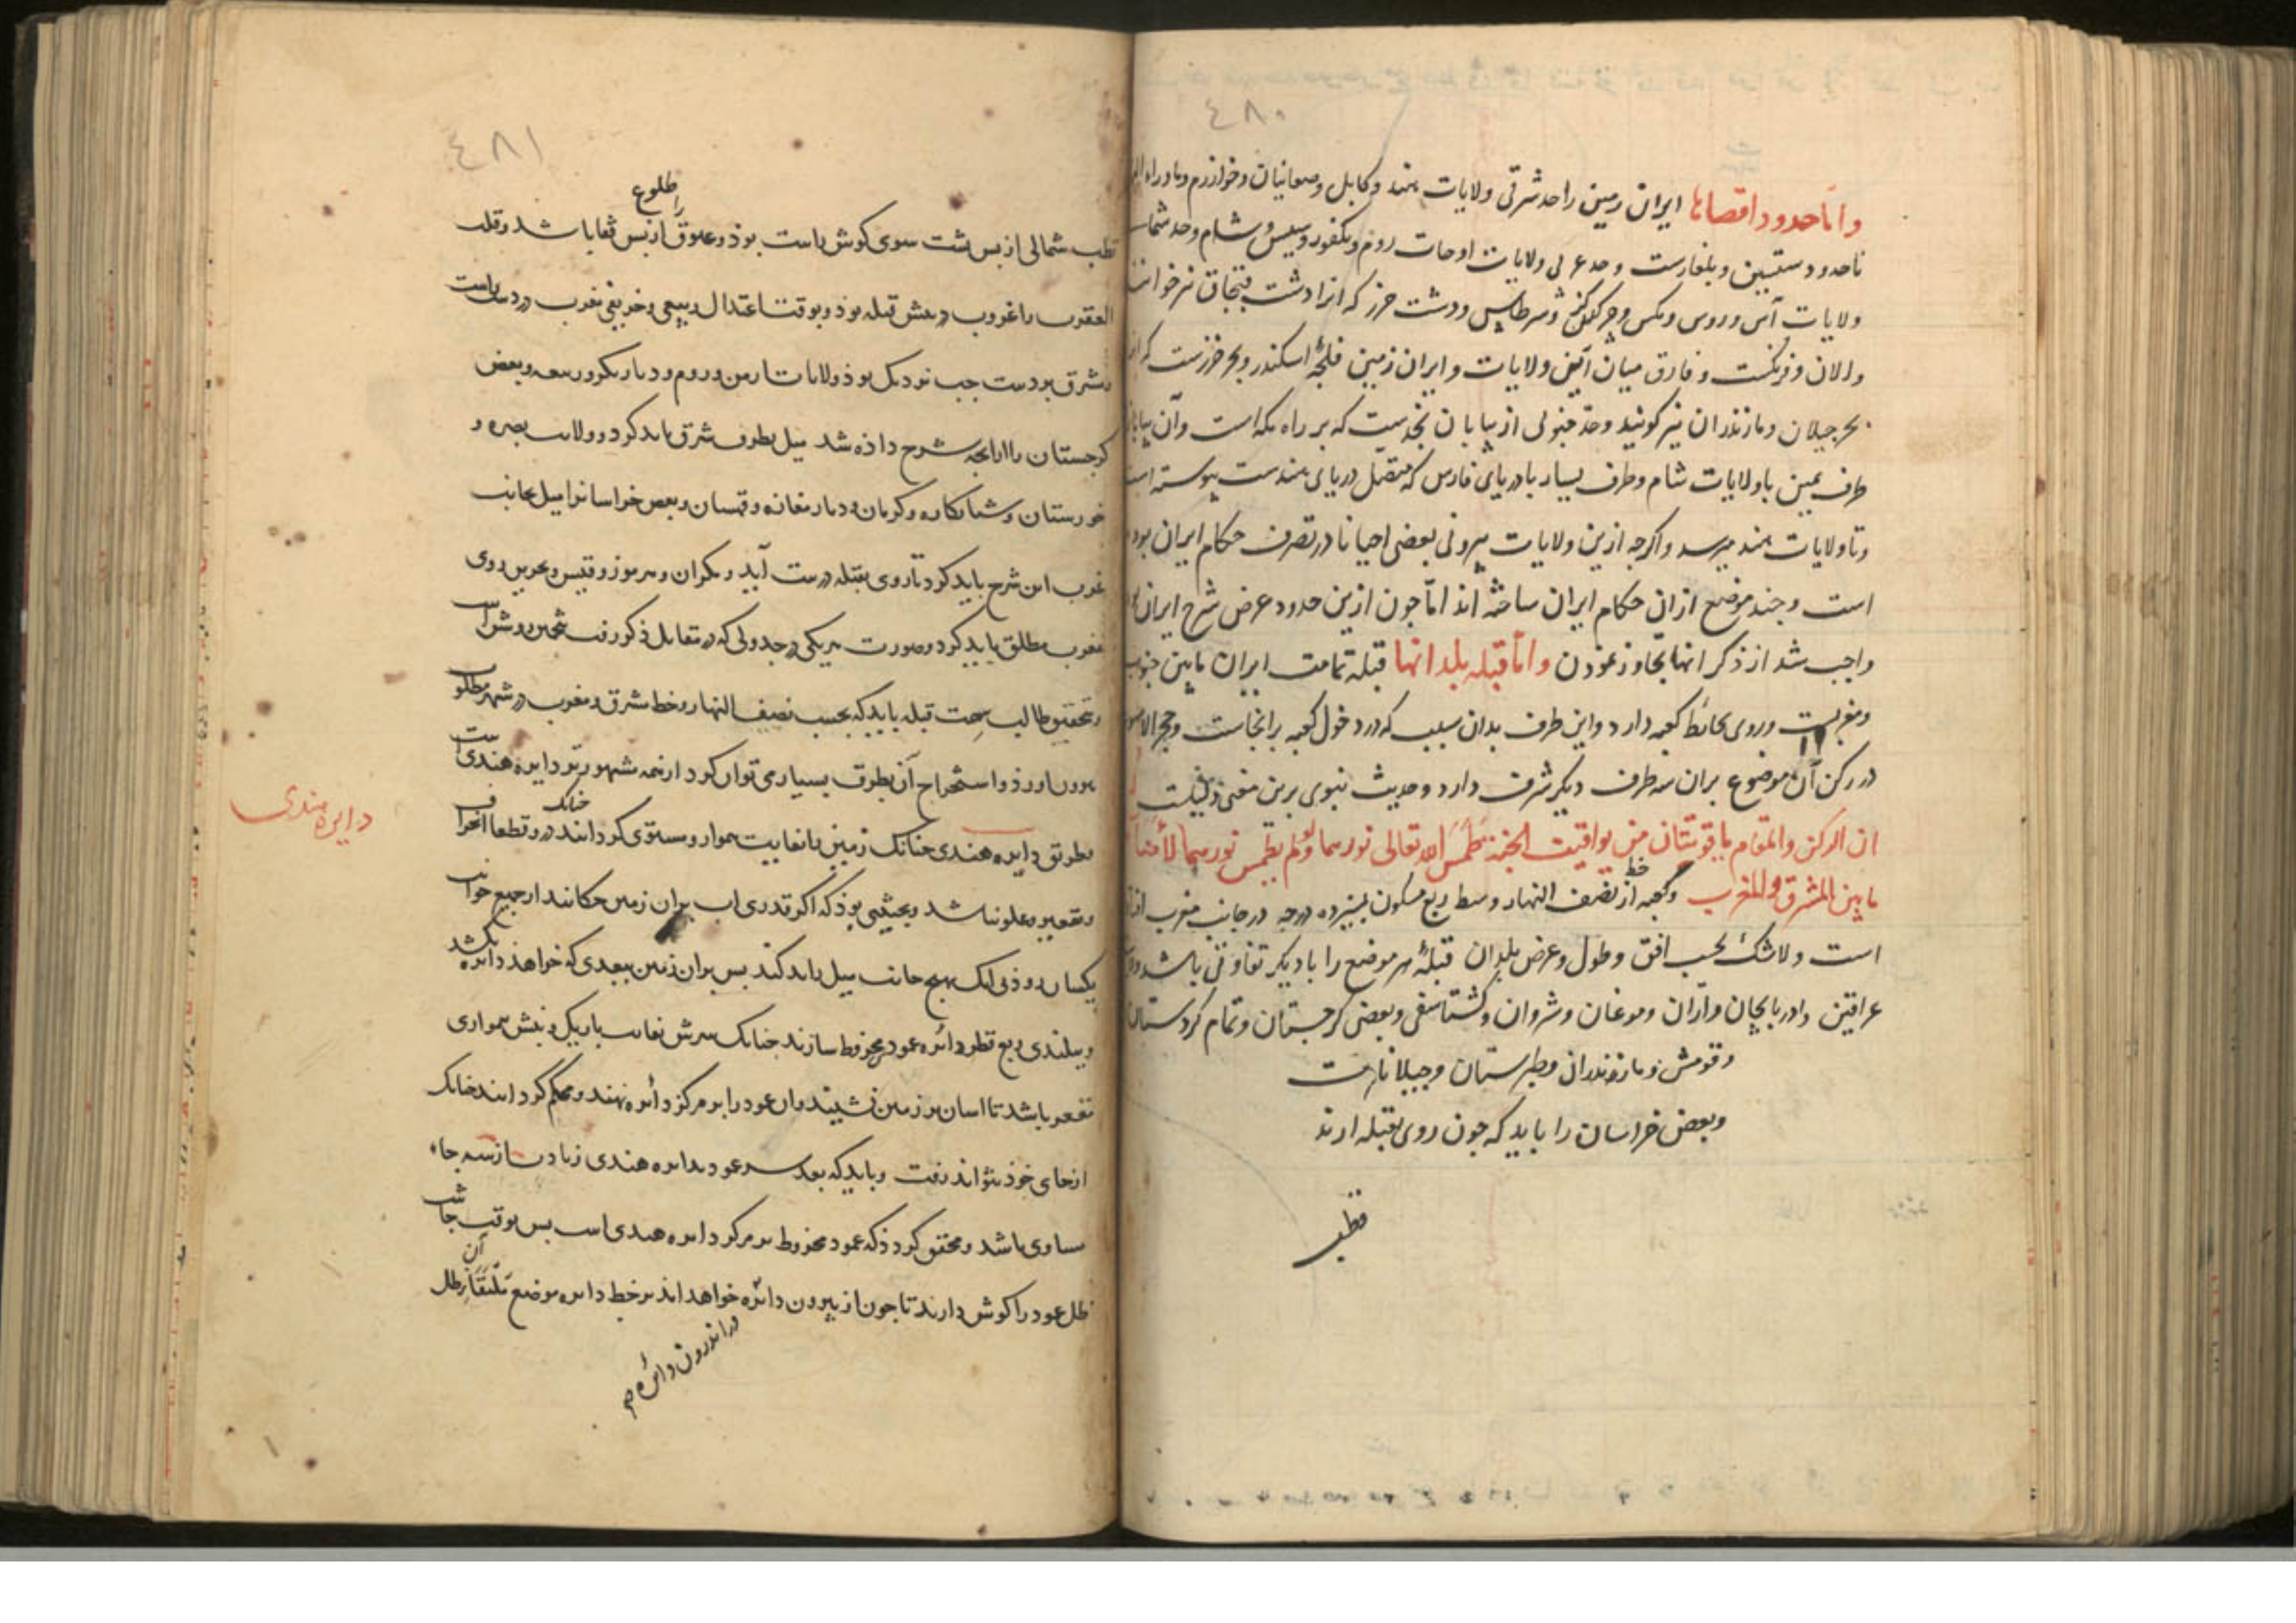 ٤٨٠
و اما حدود اقصاها ایران زمین را حد شرقی ولایات هند و کابل و صغانیان و خوارزم و ماوراء
تا حدود سقسین و بلغارست و حد غربی ولایات اوجات روم و نکفور و سیس و شام و حد شمالی
ولایات آس و روس و مکس و چرکس و برطاس و دشت خزر که انرا دشت قبچاق نیز خوانند
و الان و فرنکست و فارق میان این ولایات و ایران زمین فلجهٔ اسکندر و بحر خزرست که
بحر جیلان و مازندران نیز کویند و حد جنوبی از بیابان نجدست که بر راه مکه است و آن بیابان
طرف یمین با ولایات شام و طرف یسار با دریای فارس که متصل دریای هندست پیوسته است
و تا ولایات هند میرسد و اکرچه ازین ولایات بیرونی بعضی احیانا در تصرف حکام ایران بوده
است و چند موضع ازان حکام ایران ساخته اند اما چون ازین حدود عرض شرح ایران
واجب شد از ذکر انها تجاوز نمودن و اما قبله بلدانها قبله تمامت ایران ما بین جنوب
و مغربست و روی بحائط کعبه دارد و این طرف بدان سبب که در دخول کعبه برانجاست و حجر الاسود
در رکن آن موضوع بران سه طرف دیکر شرف دارد و حدیث نبوی برین معنی
ان الرکن و المقام یاقوتتان من یواقیت الجنة طمس الله تعالی نورهما و لو لم یطمس نورهما لأضاءتا
ما بین المشرق و المغرب و کعبه از خط نصف النهار وسط ربع مسکون بسیزده درجه در جانب مغرب
است و لاشک بحسب افق و طول و عرض بلدان قبلهٔ هر موضع را با دیکر تفاوتی باشد
عراقین و ادربایجان و اران و موغان و شروان و کشتاسفی و بعضی کرجستان و تمام کردستان
و قومش و مازندران و طبرستان و جیلانات
و بعضی خراسان را باید که چون روی بقبله ارند
قطب
٤٨١
قطب شمالی از پس پشت سوی کوش راست بود و عیوق را طلوع از پس قفا باشد و قلب
العقرب را غروب در پیش قبله بود و بوقت اعتدال ربیعی و خریفی مغرب در دست راست
و مشرق بر دست چپ نزدیک بود و ولایات ارمن و روم و دیار بکر و ربیعه و بعض
کرجستان را از انچه شرح داده شد میل بطرف شرق باید کرد و ولایت بصره و
خوزستان و شبانکاره و کرمان و دیار مفازه و قهستان و بعض خراسانرا میل بجانب
غرب این شرح باید کرد تا روی بقبله درست آید و مکران و هرموز و قیس و بحرین روی
بمغرب مطلق باید کرد و صورت هر یکی در جدولی که در مقابل ذکر رفت مبین و روشن است
و تحقیق طالب سمت قبله باید که بحسب نصف النهار و خط مشرق و مغرب در شهر مطلوب
بیرون اورد و استخراج آن بطرق بسیار می توان کرد از همه مشهورتر دایره هندی است
دایره هندی
بطریق دایره هندی چنانک زمین بغایت هموار و مستوی کردانند چنانک درو قطعا انحراف
و تقعیر و علو نباشد و بحیثیتی بود که اکر قدری اب بران زمین چکانند از جمیع جوانب
یکسان رود بی انک بهیچ جانب میل باید کند پس بران زمین ببعدی که خواهند دائره بکشند
و ببلندی ربع قطر دائره عمود مخروط سازند چنانک سرش بغایت باریک و بنش بهمواری
مقعر باشد تا اسان بر زمین نشیند و ان عمود را بر مرکز دائره نهند و محکم کردانند چنانک
از جای خود نتواند رفت و باید که بعد سر عمود بدایره هندی زیادت از سه جاء
مساوی باشد و محقق کردد که عمود مخروط بر مرکز دایره هندی است پس بوقت چاشت
ظل عمود را کوش دارند تا چون از بیرون دائره خواهد اند بر خط دایره موضع آن ظل
در اندرون دائره